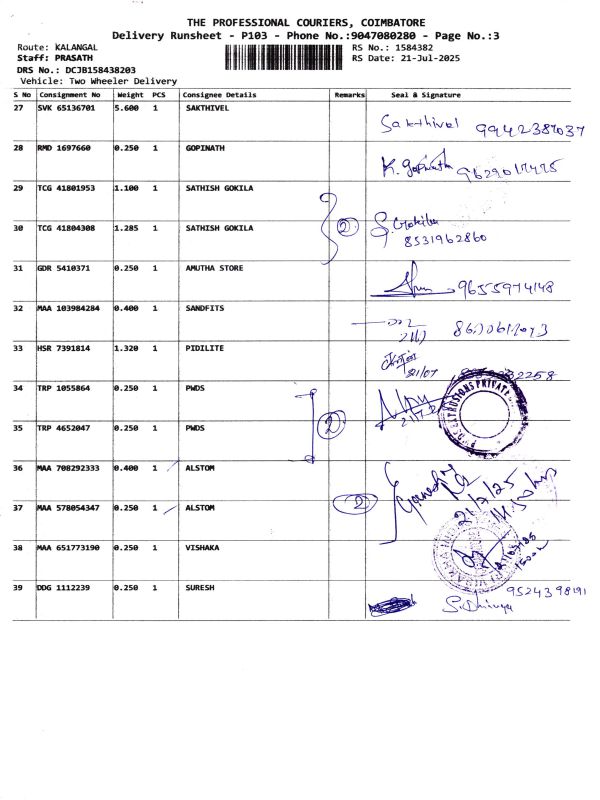 THE PROFESSIONAL COURIERS, COIMBATORE
Delivery Runsheet - P103 - Phone No.:9047080280 - Page No.:3
Route: KALANGAL RS No.: 1584382
Staff: PRASATH RS Date: 21-Jul-2025
DRS No.: DCJB158438203
Vehicle: Two Wheeler Delivery
S No Consignment No Weight PCS Consignee Details Remarks Seal & Signature
27 SVK 65136701 5.600 1 SAKTHIVEL
Sakthivel 9942387037
28 RMD 1697660 0.250 1 GOPINATH
K. Gopinath
29 TCG 41801953 1.100 1 SATHISH GOKILA
30 TCG 41804308 1.285 1 SATHISH GOKILA 2 S. Gokila
8531962860
31 GDR 5410371 0.250 1 AMUTHA STORE
9655974148
32 MAA 103984284 0.400 1 SANDFITS
21/7
33 HSR 7391814 1.320 1 PIDILITE
21/07
34 TRP 1055864 0.250 1 PWDS
35 TRP 4652047 0.250 1 PWDS 2
36 MAA 708292333 0.400 1 ALSTOM
Ganesh
21/7/25
37 MAA 578054347 0.250 1 ALSTOM 2
38 MAA 651773190 0.250 1 VISHAKA
39 DDG 1112239 0.250 1 SURESH
9524398191
S. Dhivya